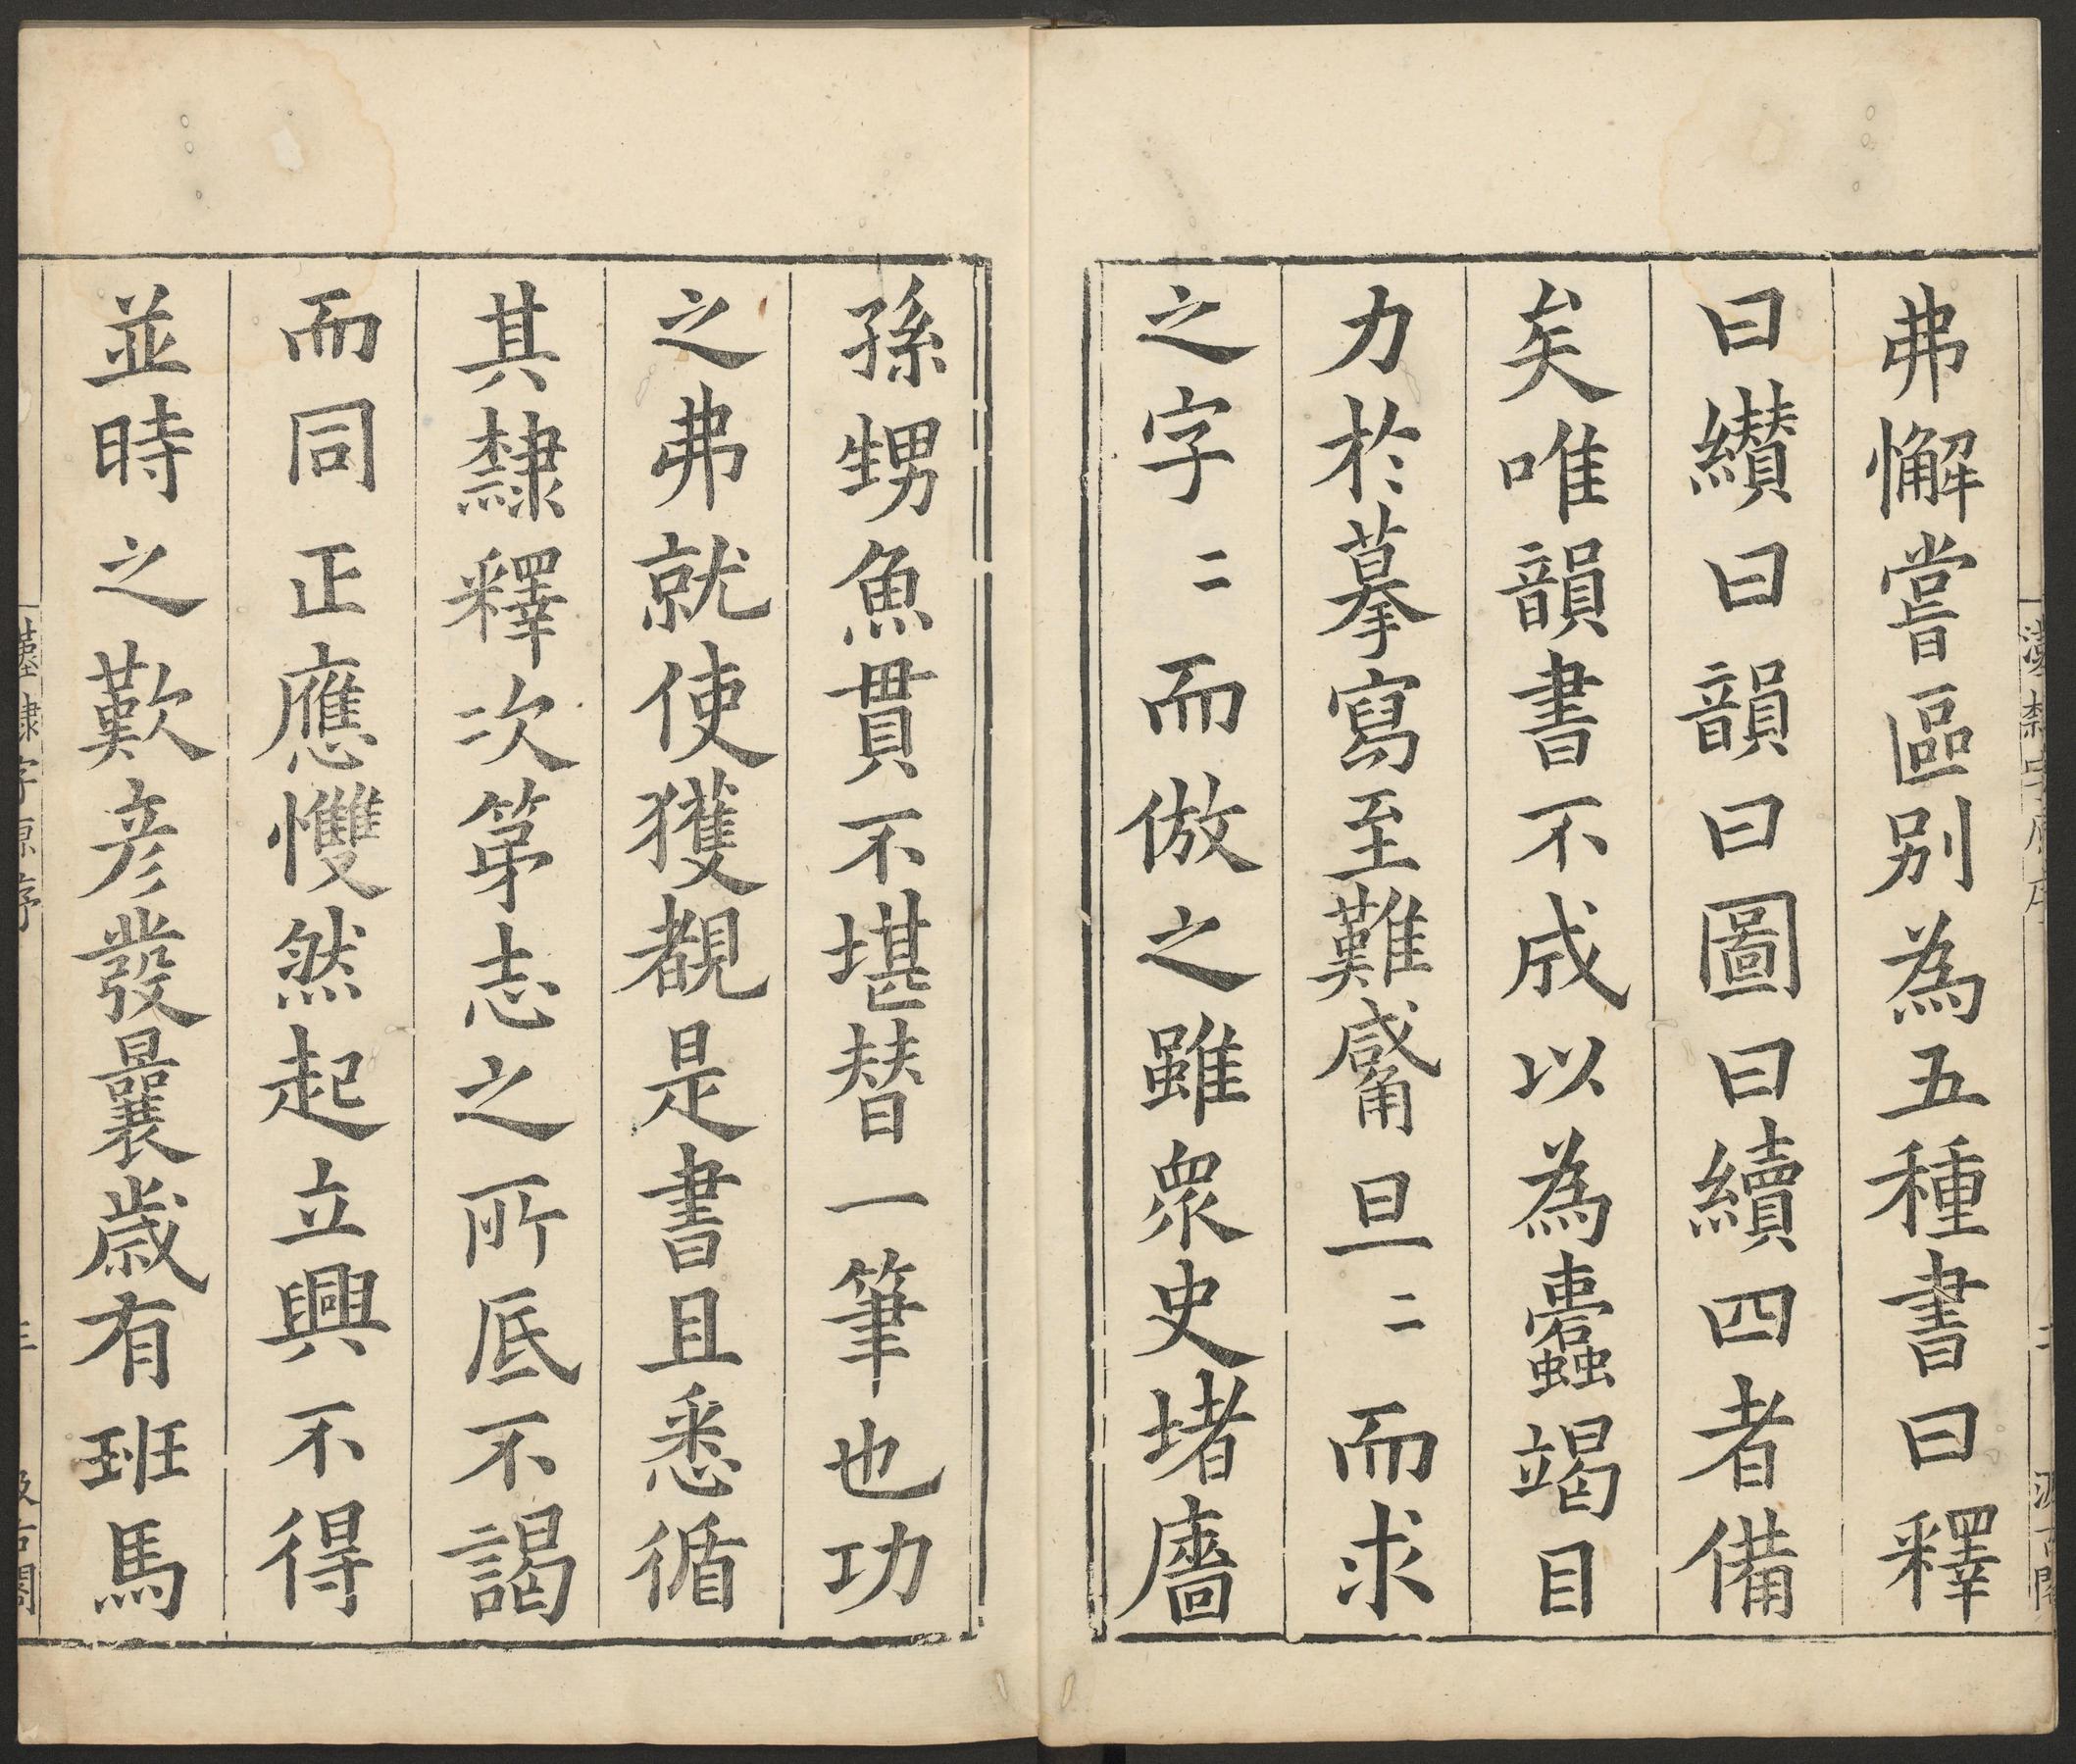 弗懈嘗區别為五種書曰釋
曰纉曰韻曰圖曰續四者備
矣唯韻書不成以為蠹竭目
力於摹寫至難鬳旦二而求
之字二而倣之雖衆史堵廧
孫甥魚貫不堪替一筆也功
之弗就使獲覩是書且悉循
其隸釋次第志之所底不謁
而同正應戄然起立興不得
並時之歎彦發曩歲有班馬
漢隸字原序
二
汲古閣
漢隸字原序
三
汲古閣